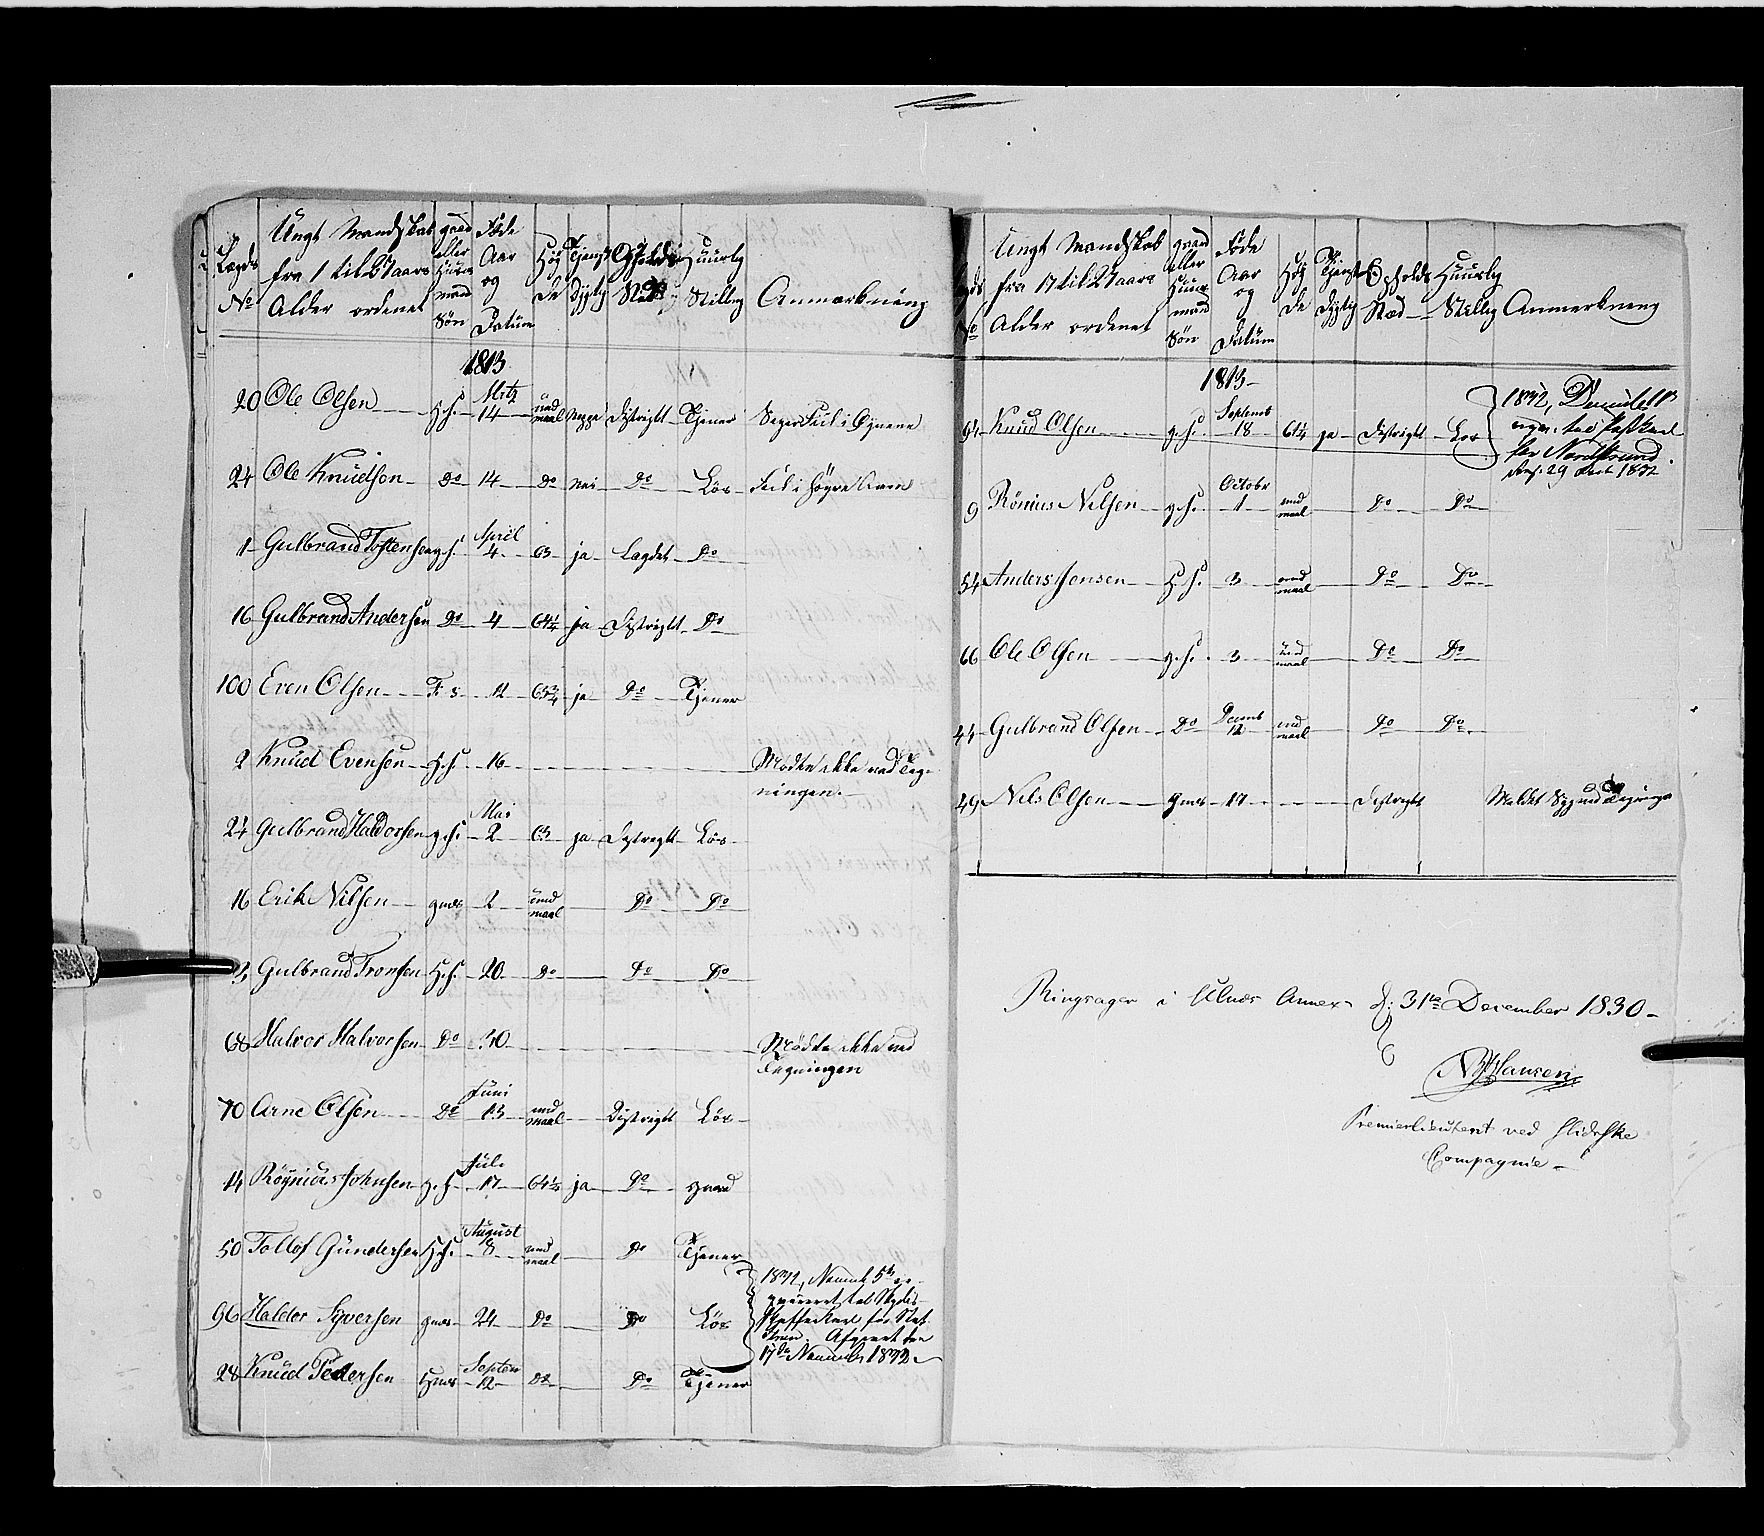 Lægds No | Ungt Mandskab fra 17 til 27 Aars Alder ordenet | gaard eller Huus mand Sön | Føde Aar og Datum | Höy de | Tjenst Dygtig | Opholds Stæd | Huuslig Stilling | Anmærkning
1813
20 Ole Olsen H.s. Mrtz 14 und maal Distrigtt Tjener Feil i Öynene
24 Ole Knudson Do 14 Do nei Do Lös Feil i höyre Arm
1 Gulbrand Tostensen g.s. April 4 63 ja Lægdet Do
16 Gulbrand Andersen Do 4 64¼ ja Distrigtt Do
100 Even Olsen F. s. 12 63¾ ja Do Tjener
2 Knud Evensen H.s. 16 Mødte ikke ved Teg-
ningen.
24 Gulbrand Haldorsen g.s. Mai 2 63 ja Distrigtt Lös
16 Erik Nilsen gmes 2 und maal Do Do
Gulbrand Tronsen H.s. 20 Do Do Do
68 Halvor Halvorsen Do 30 Mødte ikke ved
Tegningen
70 Arne Olsen Do Juni 13 und maal Distrigtt Lös
14 Röynius Johnsen g.s. Juli 17 64½ ja Do gaard
50 Tollof Gundersen H.s. August 8 und maal Do Tjener
96 Haldor Syversen gmes 24 Do Do Lös
1832, Novemb 5te
til Skyds-
for
Afgaaet den
17de Novemb 1832
28 Knud Pedersen Hmes Septem 12 Do Do Tjener
Lægds No | Ungt Mandskab fra 17 til 27 Aars Alder ordenet | gaard eller Huus mand Sön | Føde Aar og Datum | Höy de | Tjenst Dygtig | Opholds Stæd | Huuslig Stilling | Anmerkning
1813
94 Knud Olsen g.s. Septemb 18 61¼ ja Distrigtt Lös
1832,
for Nordsrund
29 1832
9 Rönius Nilsen g.s. Octobr 1 und maal Do Do
54 Anders Jonsen H.s. 3 und maal Do Do
66 Ole Olsen g.s. 3 und maal Do Do
44 Gulbrand Olsen Do Decemb 12 und maal Do Do
49 Nils Olsen gmes 17 Distrigtt Meldet Syg ved Tegninge
Ringsager i Ulnæs Annex d: 31te December 1830
N Hansen
Premierlieutent ved Slidrske
Compagnie